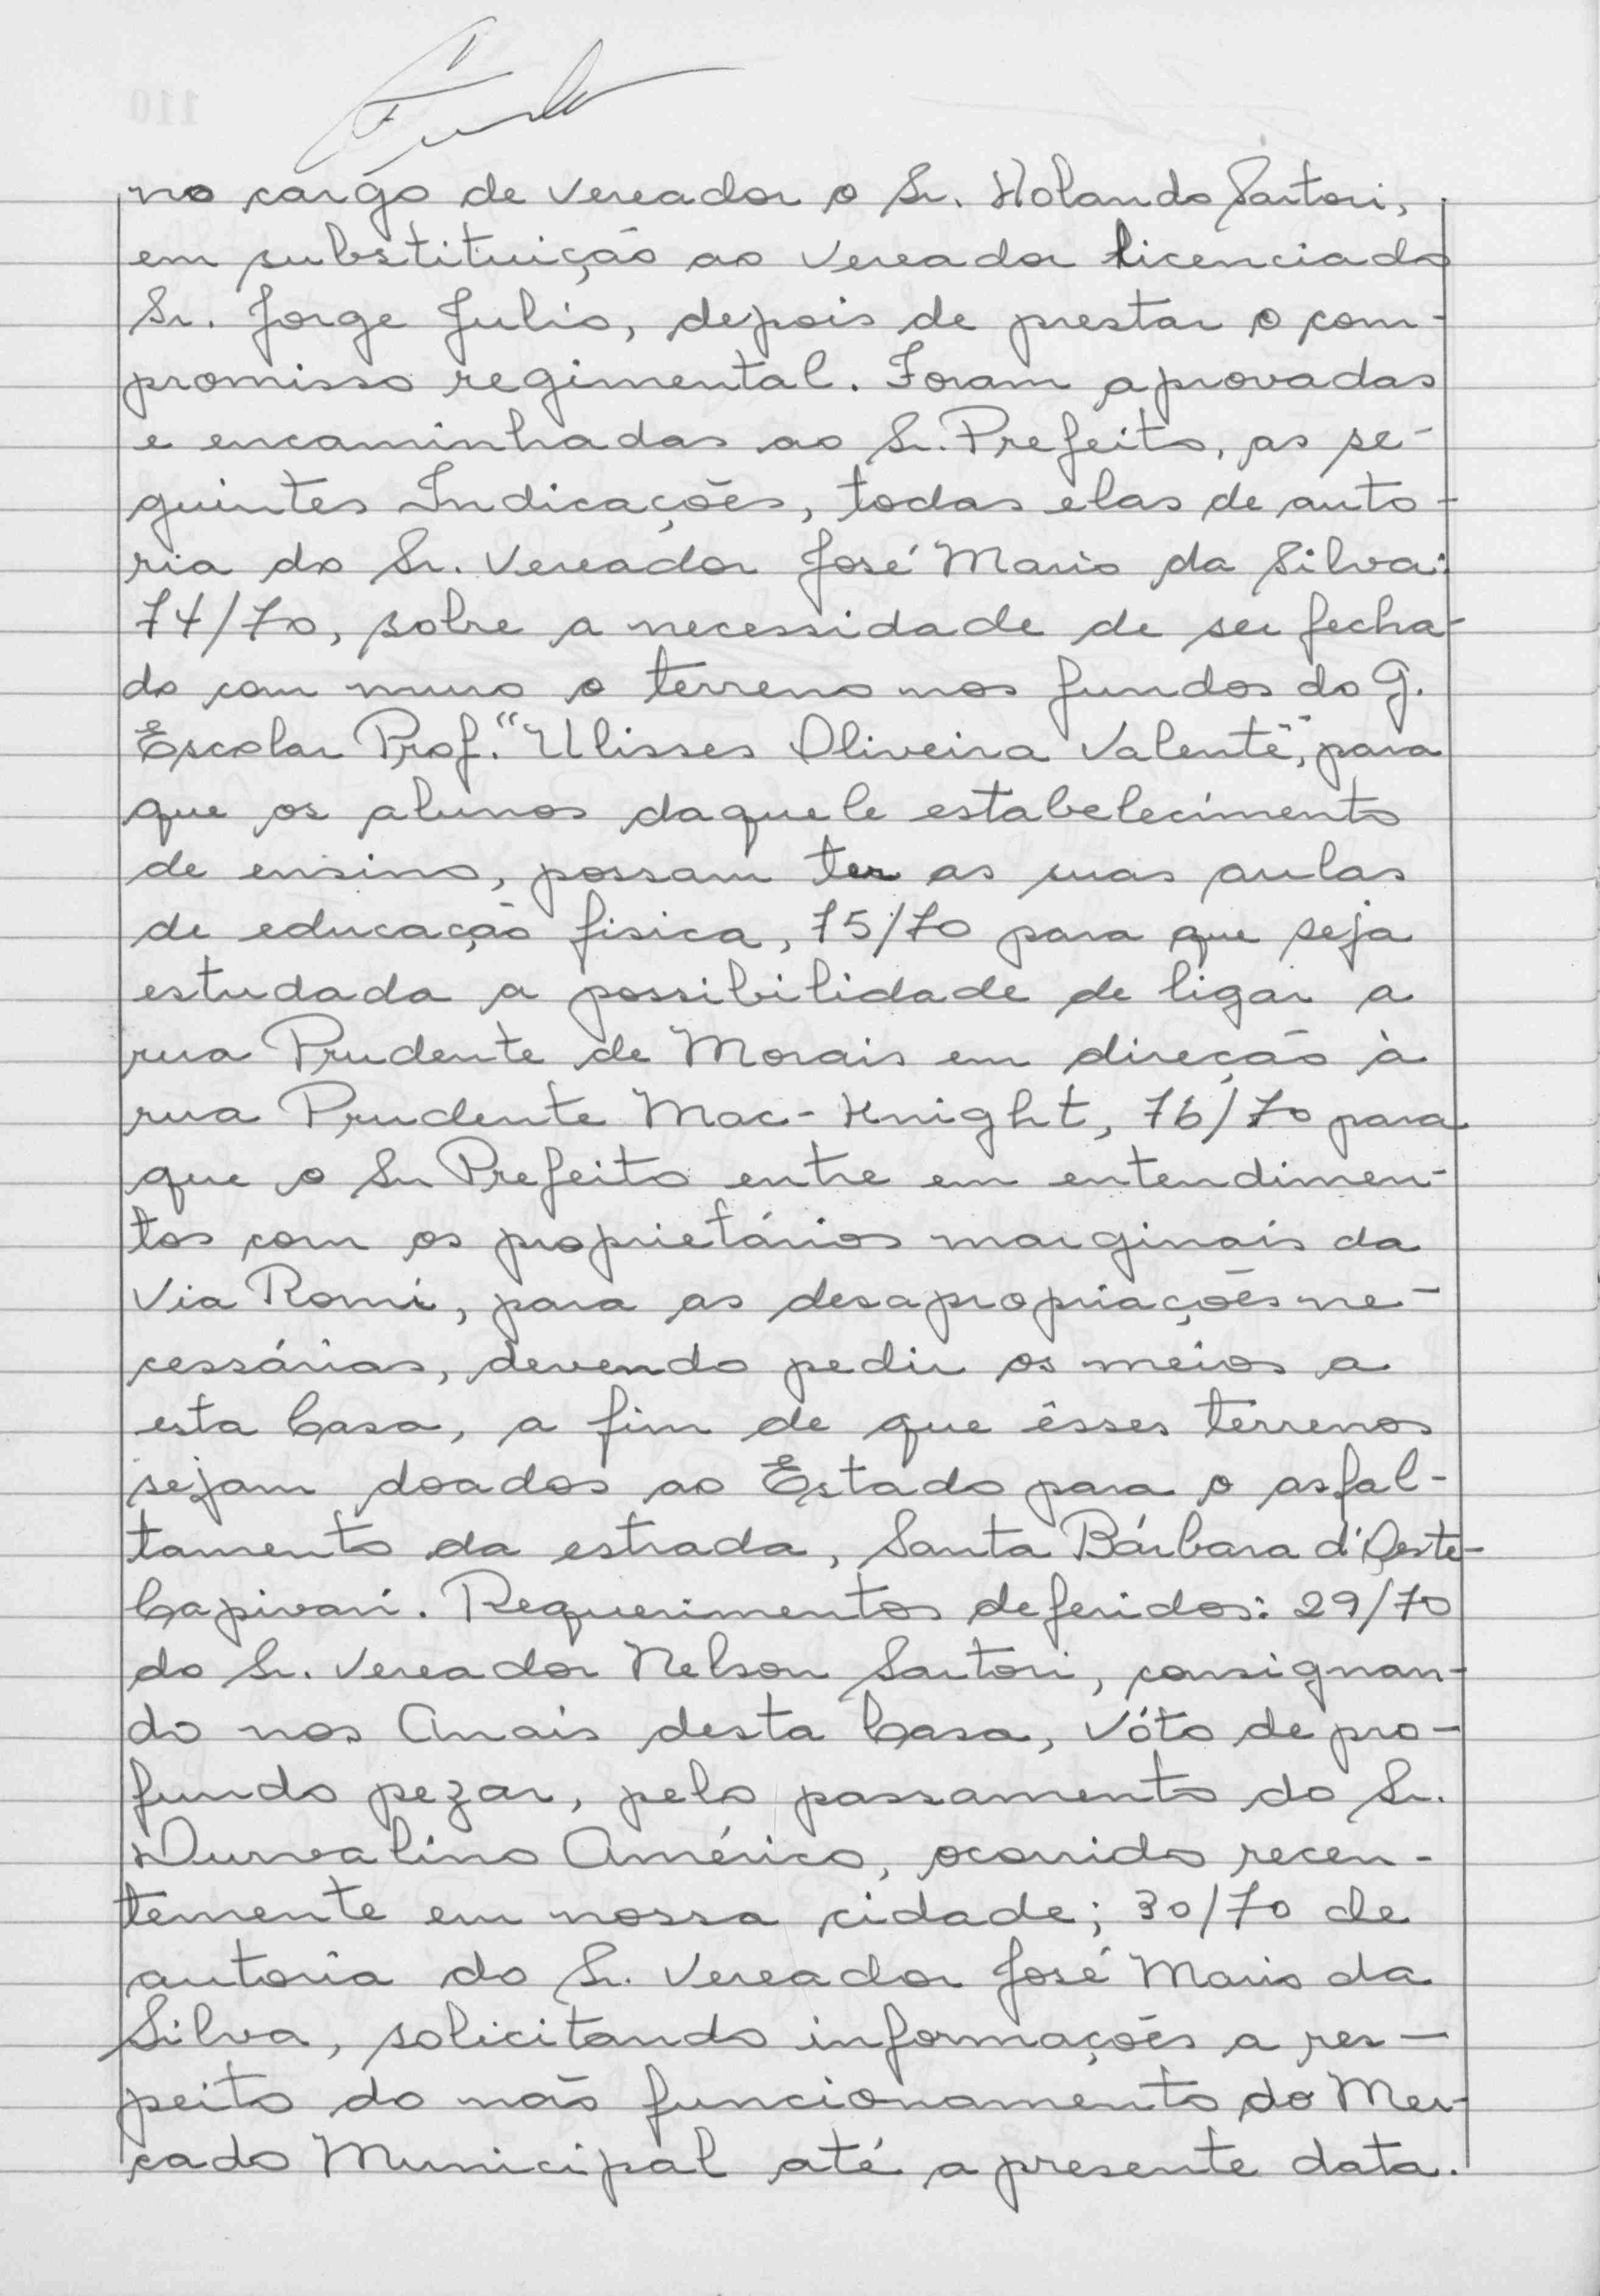 no cargo de vereador o Sr. Holando Sartori,
em substituição ao vereador licenciado
Sr. Jorge Julio, depois de prestar o com-
promisso regimental. Foram aprovadas
e encaminhadas ao Sr. Prefeito, as se-
guintes Indicações, todas elas de auto-
ria do Sr. Vereador José Mario da Silva:
74/70, sobre a necessidade de ser fecha-
do com muro o terreno nos fundos do G.
Escolar Prof. "Ulisses Oliveira Valente", para
que os alunos daquele estabelecimento
de ensino, possam ter as suas aulas
de educação fisica, 75/70 para que seja
estudada a possibilidade de ligar a
rua Prudente de Morais em direção à
rua Prudente Mac-Knight, 76/70 para
que o Sr Prefeito entre em entendimen-
tos com os proprietários marginais da
Via Romi, para as desapropriações ne-
cessárias, devendo pedir os meios a
esta Casa, a fim de que êsses terrenos
sejam doados ao Estado para o asfal-
tamento da estrada, Santa Bárbara d'Oeste-
Capivari. Requerimentos deferidos: 29/70
do Sr. Vereador Nelson Sartori, consignan-
do nos Anais desta Casa, vóto de pro-
fundo pezar, pelo passamento do Sr.
Durvalino Américo, ocorrido recen-
temente em nossa cidade; 30/70 de
autoria do Sr. Vereador José Mario da
Silva, solicitando informações a res-
peito do não funcionamento do Mer-
cado Municipal até a presente data.